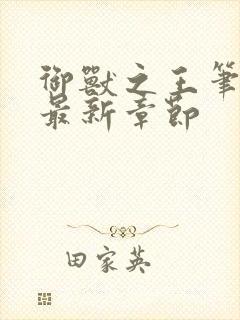 御獸之王筆
最新章節
田家英